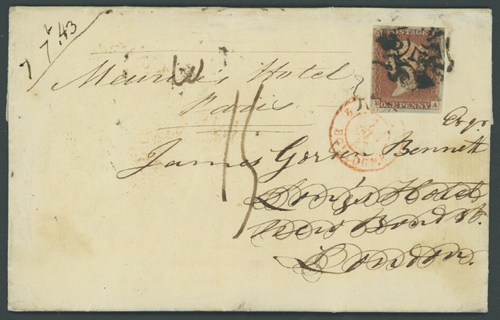 7 7.43
POSTAGE
ONE PENNY A
Meurice's Hotel
Paris
15
James Gordon Bennett Esqr
Long's Hotel
New Bond St.
London.